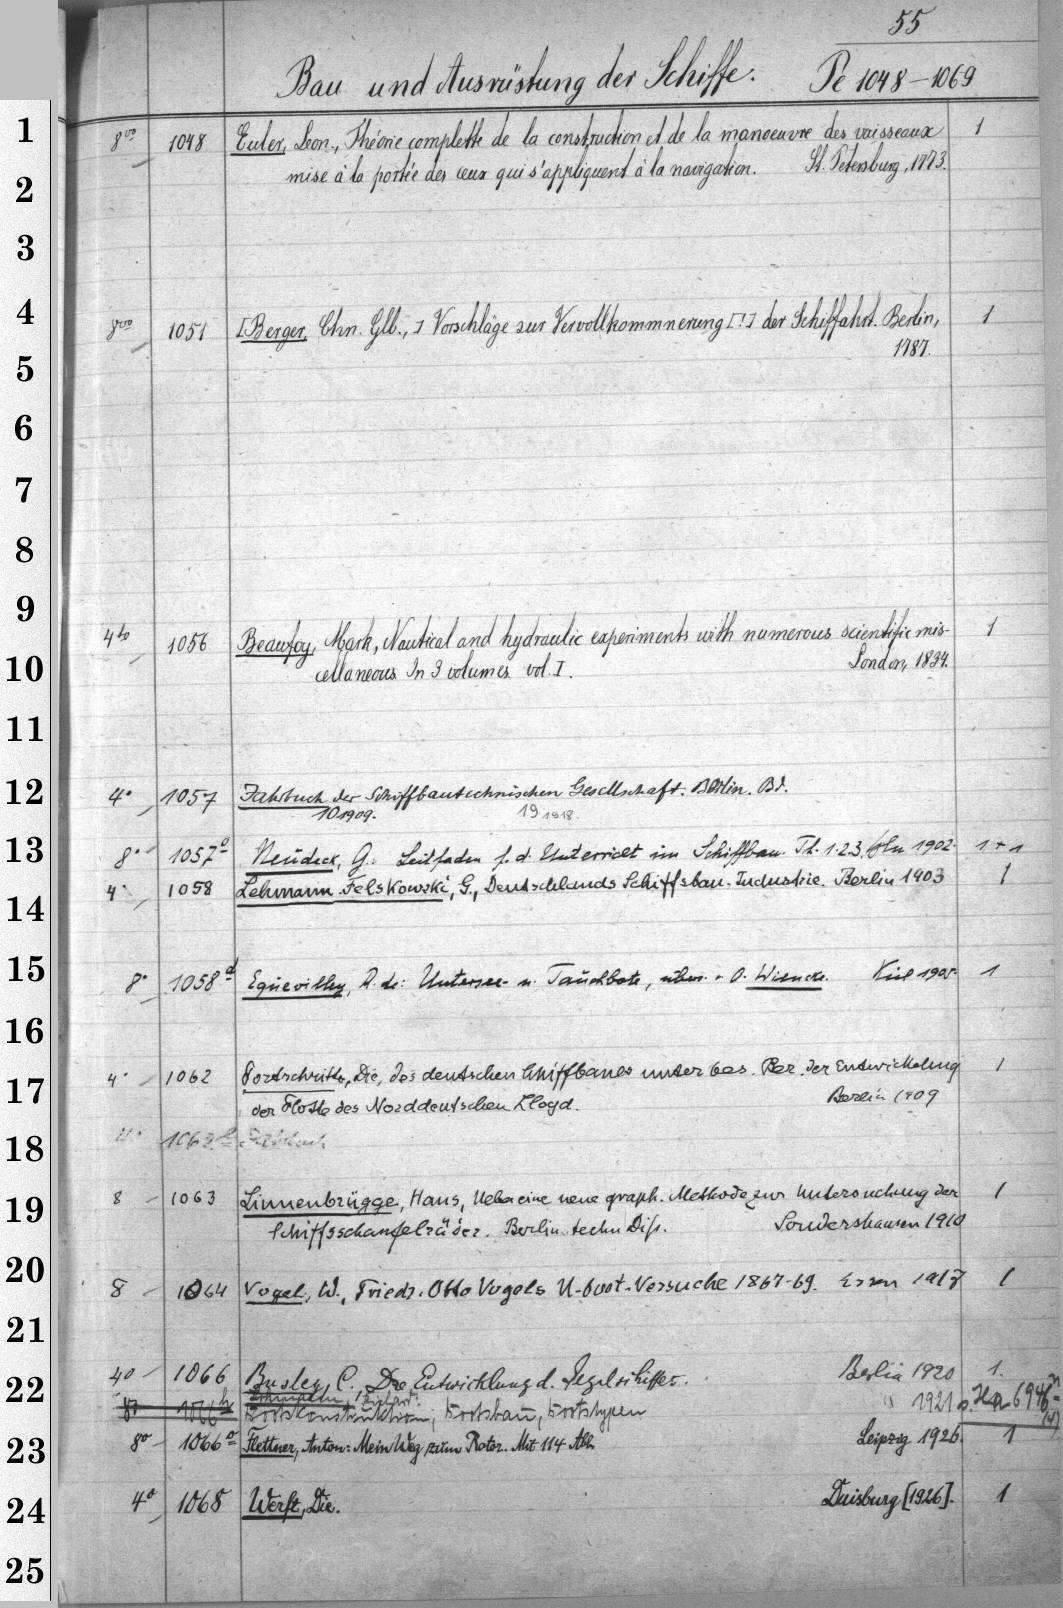 55
Bau und Ausrüstung der Schiffe. Pe 1048-1069
1
8vo 1048 Euler, Leon., Théorie complette de la construction et de la manoeuvre des vaisseaux 1
mise à la portée des ceux qui s'appliquent à la navigation. St. Petersburg, 1773.
2
3
4
8vo 1051 [Berger, Chn. Glb.,] Vorschläge zur Vervollkommnerung [!] der Schiffahrt. Berlin, 1
1787.
5
6
7
8
9
4to 1056 Beaufoy, Mark, Nautical and hydraulic experiments with numerous scientific mis- 1
cellaneous In 3 volumes vol. I. London, 1834.
10
11
12
4° 1057 Jahrbuch der Schiffbautechnischen Gesellschaft. Berlin. Bd.
10 1909. 19 1918.
13
8° 1057a Neudeck, G. Leitfaden f. d. Unterricht im Schiffbau. Th. 1.2.3. 1902. 1+1
4° 1058 Lehmann-Felskowski, G., Deutschlands Schiffsbau-Industrie. Berlin 1903 1
14
15
8° 1058a Equevilley, R. de: Untersee- u. Tauchbote, übers. v. O. Wiencke. Kiel 1905. 1
16
17
4° 1062 Fortschritte, Die, des deutschen Schiffbaues unter bes. Ber. der Entwickelung 1
der Flotte des Norddeutschen Lloyd. Berlin 1909
18
4°
19
8 1063 Linnenbrügge, Hans, Ueber eine neue graph. Methode zur Untersuchung der 1
Schiffsschaufelräder. Berlin techn Diss. Sondershausen 1910
20
8 1064 Vogel, W., Friedr. Otto Vogels U-boot-Versuche 1867-69. Essen 1917 1
21
22
4° 1066 Busley, C., Die Entwicklung d. Segelschiffes. Berlin 1920 1.
Bootskonstruktion, Bootsbau, Bootstypen 1921
23
8° 1066a Flettner, Anton: Mein Weg zum Rotor. Mit 114 Abb. Leipzig 1926. 1
24
4° 1068 Werft, Die. Duisburg [1926]. 1
25